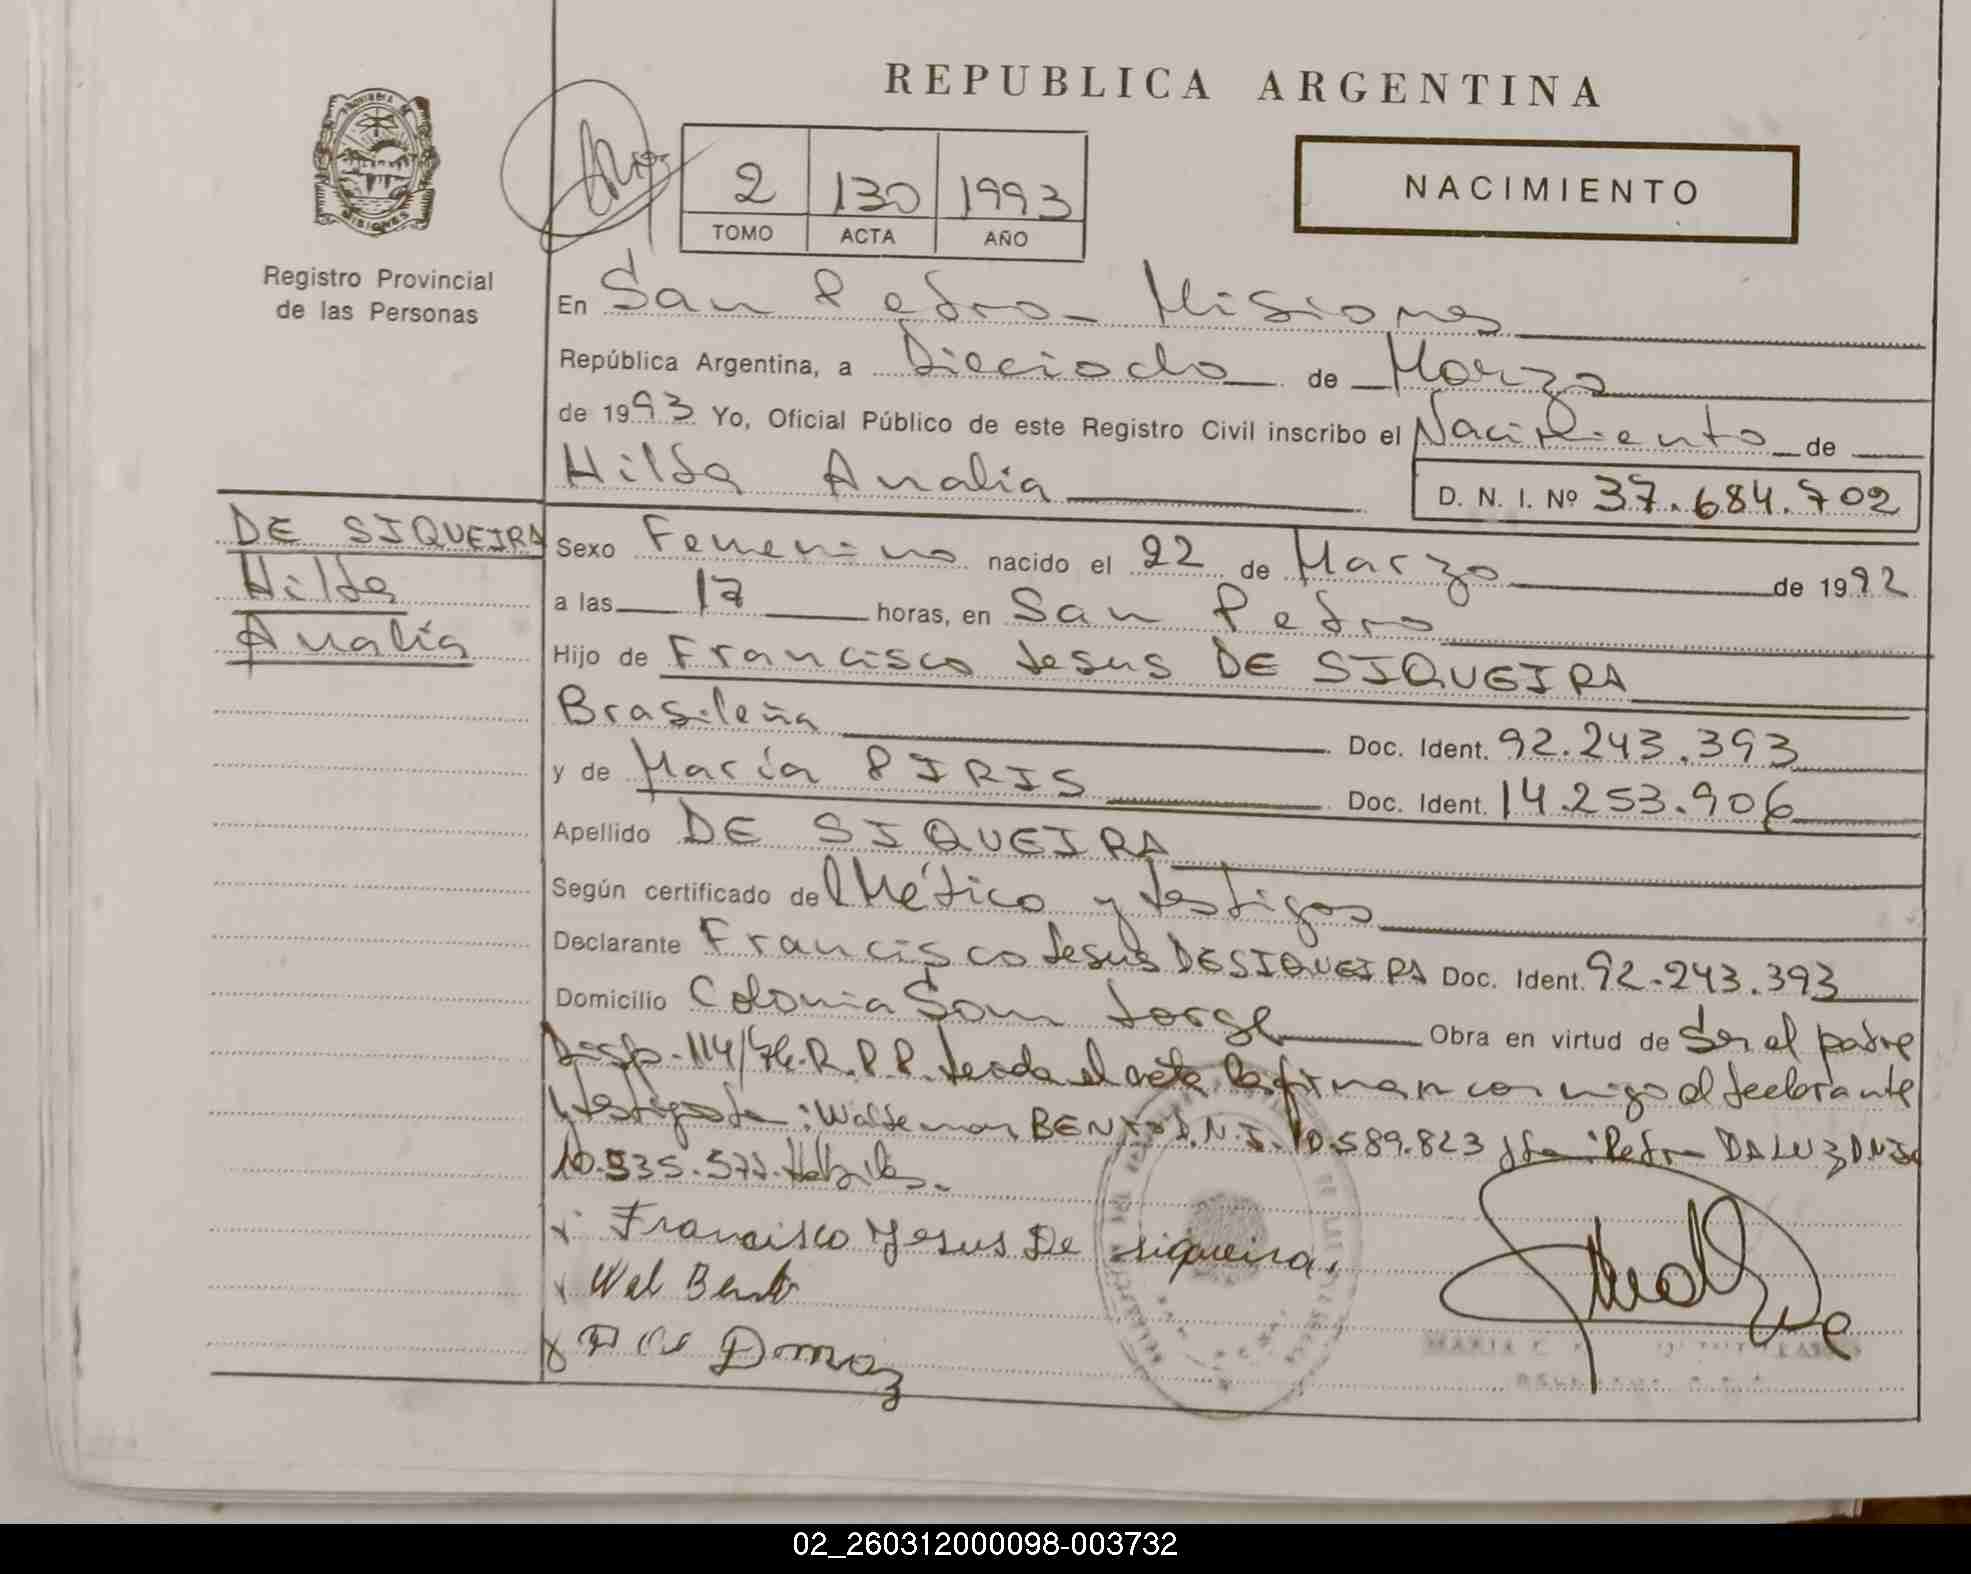 REPUBLICA ARGENTINA
NACIMIENTO
2 130 1993
TOMO ACTA AÑO
PROVINCIA DE MISIONES
Registro Provincial
de las Personas
En San Pedro - Misiones
República Argentina, a Dieciocho de Marzo
de 1993 Yo, Oficial Público de este Registro Civil inscribo el Nacimiento de
Hilda Analia
D. N. I. Nº 37.684.702
DE SIQUEIRA
Hilda
Analía
Sexo Femenino nacido el 22 de Marzo de 1992
a las 17 horas, en San Pedro
Hijo de Francisco Jesus DE SIQUEIRA
Brasileña Doc. Ident. 92.243.393
y de María PIRIS Doc. Ident. 14.253.906
Apellido DE SIQUEIRA
Según certificado del Médico y testigos
Declarante Francisco Jesus DE SIQUEIRA Doc. Ident. 92.243.393
Domicilio Colonia San Jorge Obra en virtud de Ser el padre
Disp. 114/76. R.P.P. Leida el acta la firman conmigo el declarante
y testigos: Waldemar BENTO D.N.I. 10.589.823 Pedro DA LUZ DNI
Habiles.
Francisco Jesus De siqueira
Wal Bento
MARIA C.
02_260312000098-003732